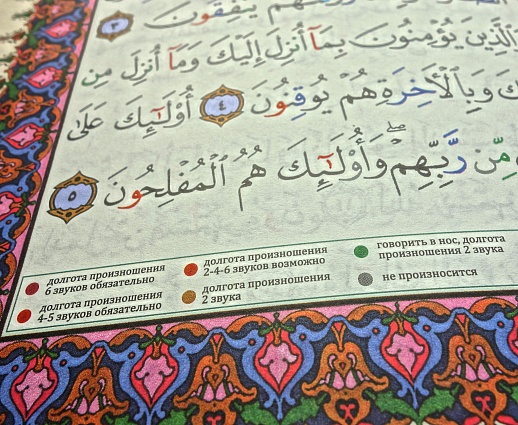 يُنفِقُونَ ٣
وَالَّذِينَ يُؤْمِنُونَ بِمَآ أُنزِلَ إِلَيْكَ وَمَآ أُنزِلَ مِن
وَبِالْأَخِرَةِ هُمْ يُوقِنُونَ ٤ أُوْلَٰٓئِكَ عَلَىٰ
مِّن رَّبِّهِمْ ۖ وَأُوْلَٰٓئِكَ هُمُ الْمُفْلِحُونَ ٥
долгота произношения 6 звуков обязательно
долгота произношения 4-5 звуков обязательно
долгота произношения 2-4-6 звуков возможно
долгота произношения 2 звука
говорить в нос, долгота произношения 2 звука
не произносится